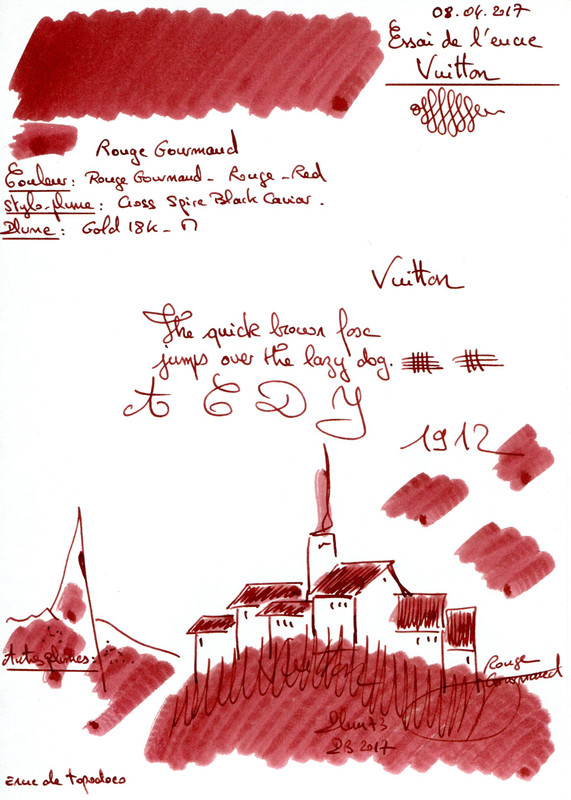 08.04.2017
Essai de l'encre
Vuitton
Rouge Gourmand
Couleur: Rouge Gourmand - Rouge - Red
Stylo-plume: Cross Spire Black Caviar.
Plume: Gold 18k - M
Vuitton
The quick brown fox
jumps over the lazy dog.
A E D Y
1912
Autres plumes:
Vuitton
Rouge
Gourmand
2017
Encre de